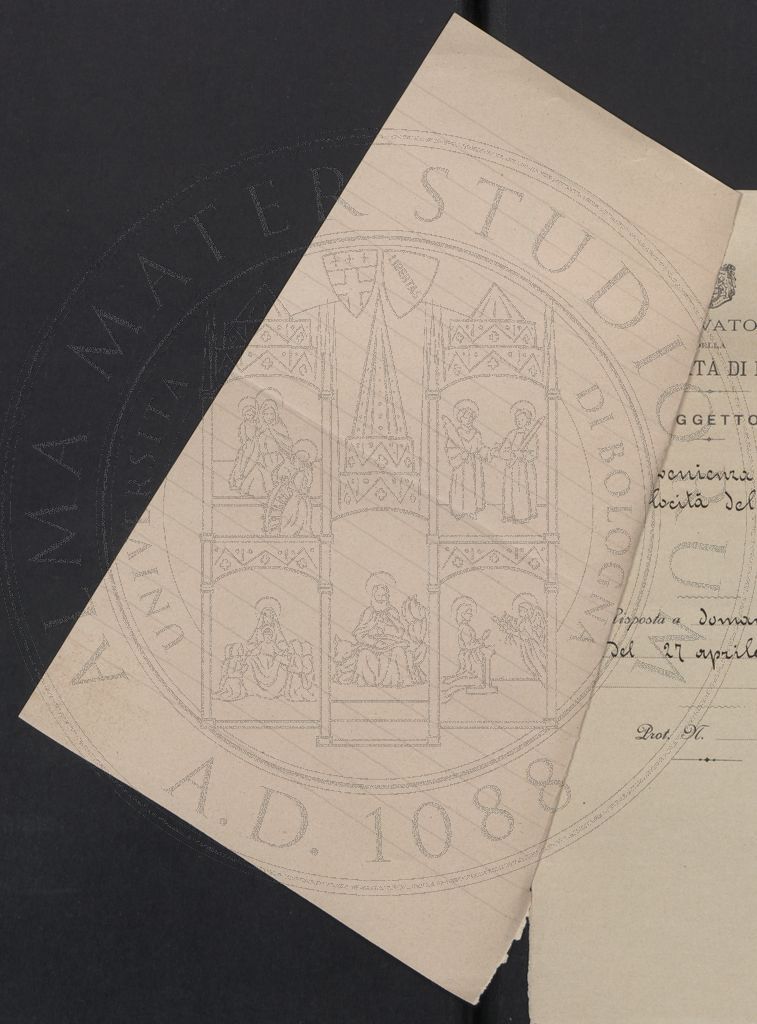 ALMA MATER STUDIORUM
UNIVERSITA DI BOLOGNA
LIBERTAS
A.D. 1088
VATO
DELLA
TÀ DI
GGETTO
venienza
locità del
Risposta a doman
del 27 aprile
Prot. N.